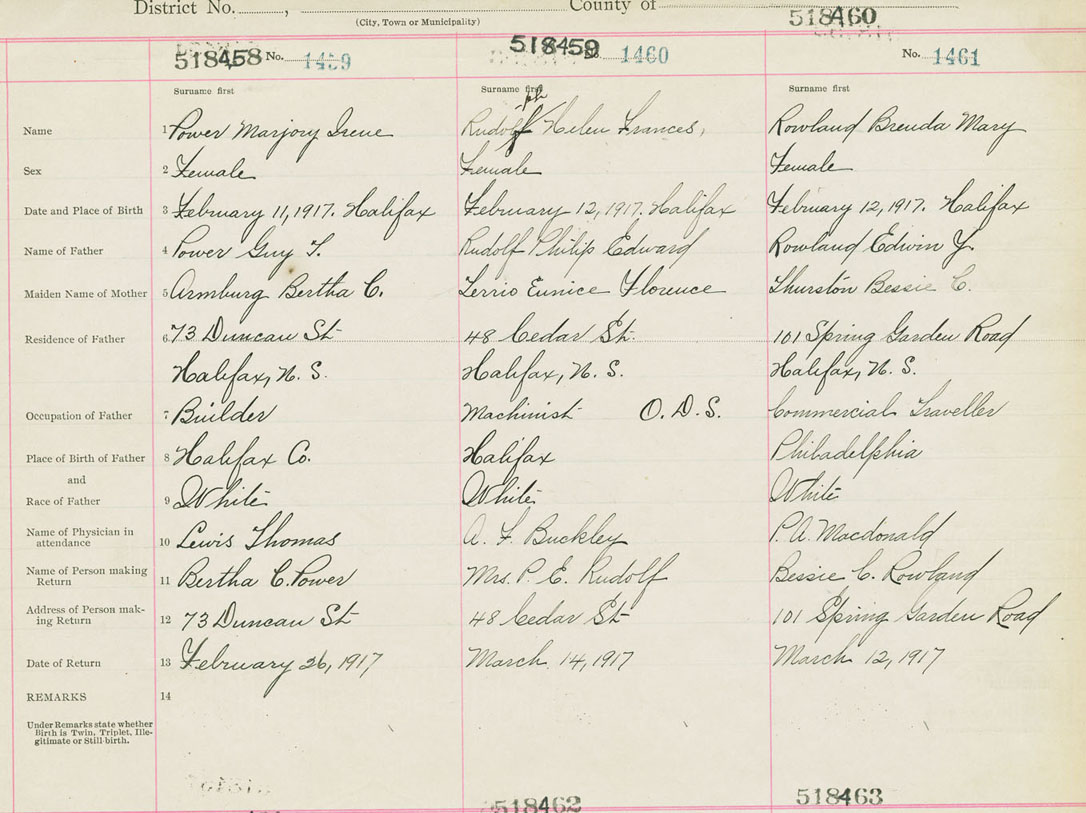 District No. , County of
(City, Town or Municipality)
518460
518458 No. 1459
518459 No. 1460
No. 1461
Surname first Surname first Surname first
Name 1 Power Marjory Irene Rudolf ph Helen Frances, Rowland Brenda Mary
Sex 2 Female Female Female
Date and Place of Birth 3 February 11, 1917. Halifax February 12, 1917. Halifax February 12, 1917. Halifax
Name of Father 4 Power Guy T. Rudolf Philip Edward Rowland Edwin Y.
Maiden Name of Mother 5 Armburg Bertha C. Lerrio Eunice Florence Thurston Bessie C.
Residence of Father 6 73 Duncan St 48 Cedar St. 101 Spring Garden Road
Halifax, N. S. Halifax, N. S. Halifax, N. S.
Occupation of Father 7 Builder Machinist O. D. S. Commercial Traveller
Place of Birth of Father 8 Halifax Co. Halifax Philadelphia
and
Race of Father 9 White White White
Name of Physician in
attendance 10 Lewis Thomas A. F. Buckley P. A. Macdonald
Name of Person making
Return 11 Bertha C. Power Mrs. P. E. Rudolf Bessie C. Rowland
Address of Person mak-
ing Return 12 73 Duncan St 48 Cedar St 101 Spring Garden Road
Date of Return 13 February 26, 1917 March 14, 1917 March 12, 1917
REMARKS 14
Under Remarks state whether
Birth is Twin, Triplet, Ille-
gitimate or Still-birth.
518462 518463